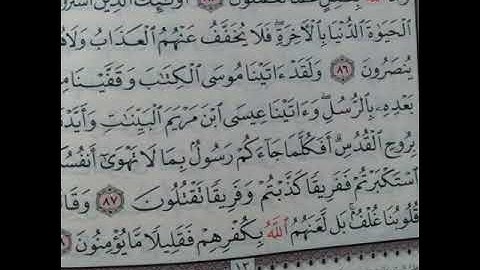 الله بِغَٰفِلٍ عَمَّا تَعْمَلُونَ ٨٥ أُو۟لَٰٓئِكَ الَّذِينَ اشْتَرَوُا
الْحَيَوٰةَ الدُّنْيَا بِالْءَاخِرَةِ فَلَا يُخَفَّفُ عَنْهُمُ الْعَذَابُ وَلَا هُمْ
يُنصَرُونَ ٨٦ وَلَقَدْ ءَاتَيْنَا مُوسَى الْكِتَٰبَ وَقَفَّيْنَا مِنۢ
بَعْدِهِۦ بِالرُّسُلِ وَءَاتَيْنَا عِيسَى ابْنَ مَرْيَمَ الْبَيِّنَٰتِ وَأَيَّدْنَٰهُ
بِرُوحِ الْقُدُسِ أَفَكُلَّمَا جَآءَكُمْ رَسُولٌۢ بِمَا لَا تَهْوَىٰٓ أَنفُسُكُمُ
اسْتَكْبَرْتُمْ فَفَرِيقًا كَذَّبْتُمْ وَفَرِيقًا تَقْتُلُونَ ٨٧ وَقَالُوا۟
قُلُوبُنَا غُلْفٌۢ بَل لَّعَنَهُمُ اللَّهُ بِكُفْرِهِمْ فَقَلِيلًا مَّا يُؤْمِنُونَ ٨٨
١٣